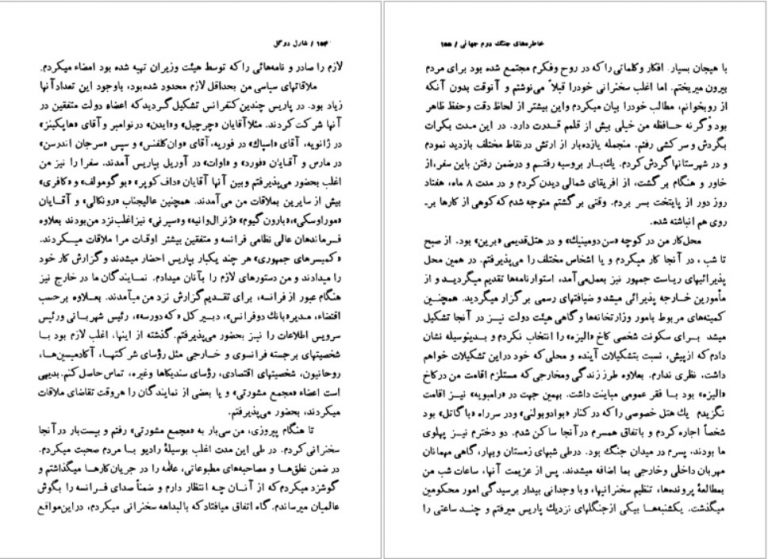 ۱۵۴ / شارل دوگل
لازم را صادر و نامه‌هائی را که توسط هیئت وزیران تهیه شده بود امضاء میکردم.
ملاقاتهای سیاسی من بحداقل لازم محدود شده بود، باوجود این تعداد آنها
زیاد بود. در پاریس چندین کنفرانس تشکیل گردید که اعضاء دولت متفقین در
آنها شرکت کردند. مثلا آقایان «چرچیل» و«ایدن» در نوامبر و آقای «هاپکینز»
در ژانویه، آقای «اسپاک» در فوریه، آقای «وان‌کلفنس» و سپس «سرجان اندرسن»
در مارس و آقایان «فورد» و «اوات» در آوریل بپاریس آمدند. سفرا را نیز من
اغلب بحضور می‌پذیرفتم وبین آنها آقایان «داف‌کوپر» «بوگومولف» و «کافری»
بیش از سایرین بملاقات من می‌آمدند. همچنین عالیجناب «رونکالی» و آقایان
«موراوسکی»، «بارون‌گیوم» «ژنرال‌وانیه» و«سیرنی» نیز اغلب نزد من بودند بعلاوه
فرماندهان عالی نظامی فرانسه و متفقین بیشتر اوقات مرا ملاقات میکردند.
«کمیسرهای جمهوری» هر چند یکبار بپاریس احضار میشدند وگزارش کار خود
را میدادند و من دستورهای لازم را بآنان میدادم. نمایندگان ما در خارج نیز
هنگام عبور از فرانسه، برای تقدیم گزارش نزد من میآمدند. بعلاوه برحسب
اقتضاء، مدیر «بانک دوفرانس»، دبیر کل «که دورسه»، رئیس شهربانی ورئیس
سرویس اطلاعات را نیز بحضور می‌پذیرفتم. گذشته از اینها، اغلب لازم بود با
شخصیتهای برجسته فرانسوی و خارجی مثل رؤسای شرکتها، آکادمیسین‌ها،
روحانیون، شخصیتهای اقتصادی، رؤسای سندیکاها وغیره، تماس حاصل کنم. بدیهی
است اعضاء «مجمع مشورتی» و یا بعضی از نمایندگان را هروقت تقاضای ملاقات
میکردند، بحضور می‌پذیرفتم.
تا هنگام پیروزی، من سی‌بار به «مجمع مشورتی» رفتم و بیست‌بار در آنجا
سخنرانی کردم. در طی این مدت اغلب بوسیلهٔ رادیو با مردم صحبت میکردم.
در ضمن نطق‌ها و مصاحبه‌های مطبوعاتی، عامه را در جریان کارها میگذاشتم و
گوشزد میکردم که از آنان چه انتظار دارم و ضمناً صدای فرانسه را بگوش
عالمیان میرساندم. گاه اتفاق میافتاد که بالبداهه سخنرانی میکردم، در این‌مواقع
خاطره‌های جنگ دوم جهانی / ۱۵۵
با هیجان بسیار. افکار وکلماتی را که در روح وفکرم مجتمع شده بود برای مردم
بیرون میریختم. اما اغلب سخنرانی خودرا قبلاً می‌نوشتم و آنوقت بدون آنکه
از رو بخوانم، مطالب خودرا بیان میکردم واین بیشتر از لحاظ دقت وحفظ ظاهر
بود وگرنه حافظه من خیلی بیش از قلمم قدرت دارد. در این مدت بکرات
بگردش و سرکشی رفتم. منجمله یازده‌بار از ارتش در نقاط مختلف بازدید نمودم
و در شهرستانها گردش کردم. یک‌بار بروسیه رفتم و درضمن رفتن باین سفر، از
خاور و هنگام برگشت، از افریقای شمالی دیدن کردم و در مدت ۸ ماه، هفتاد
روز دور از پایتخت بسر بردم. وقتی برگشتم متوجه شدم که کوهی از کارها بر-
روی هم انباشته شده.
محل‌کار من در کوچه «سن‌دومینیک» و در هتل‌قدیمی «برین» بود. از صبح
تا شب، در آنجا کار میکردم و یا اشخاص مختلف را می‌پذیرفتم. در همین محل
پذیرائیهای ریاست جمهور نیز بعمل‌می‌آمد، استوارنامه‌ها تقدیم میگردید و از
مأمورین خارجه پذیرائی میشد و ضیافتهای رسمی برگزار میگردید. همچنین
کمیته‌های مربوط بامور وزارتخانه‌ها وگاهی هیئت دولت نیز در آنجا تشکیل
میشد برای سکونت شخصی کاخ «الیزه» را انتخاب نکردم و بدینوسیله نشان
دادم که ازپیش، نسبت بتشکیلات آینده و محلی که خود در این تشکیلات خواهم
داشت، نظری ندارم. بعلاوه طرز زندگی ومخارجی که مستلزم اقامت من درکاخ
«الیزه» بود با فقر عمومی مباینت داشت. بهمین جهت در «رامبویه» نیز اقامت
نگزیدم یک هتل خصوصی را که در کنار «بوادوبولنی» ودر سرراه «باگاتل» بود
شخصاً اجاره کردم و باتفاق همسرم در آنجا ساکن شدم. دو دخترم نیز پهلوی
ما بودند، پسرم در میدان جنگ بود. درطی شبهای زمستان وبهار، گاهی مهمانان
مهربان داخلی وخارجی بما اضافه میشدند. پس از عزیمت آنها، ساعات شب من
بمطالعهٔ پرونده‌ها، تنظیم سخنرانیها، وبا وجدانی بیدار برسیدگی امور محکومین
میگذشت. یکشنبه‌ها بیکی ازجنگلهای نزدیک پاریس میرفتم و چند ساعتی را